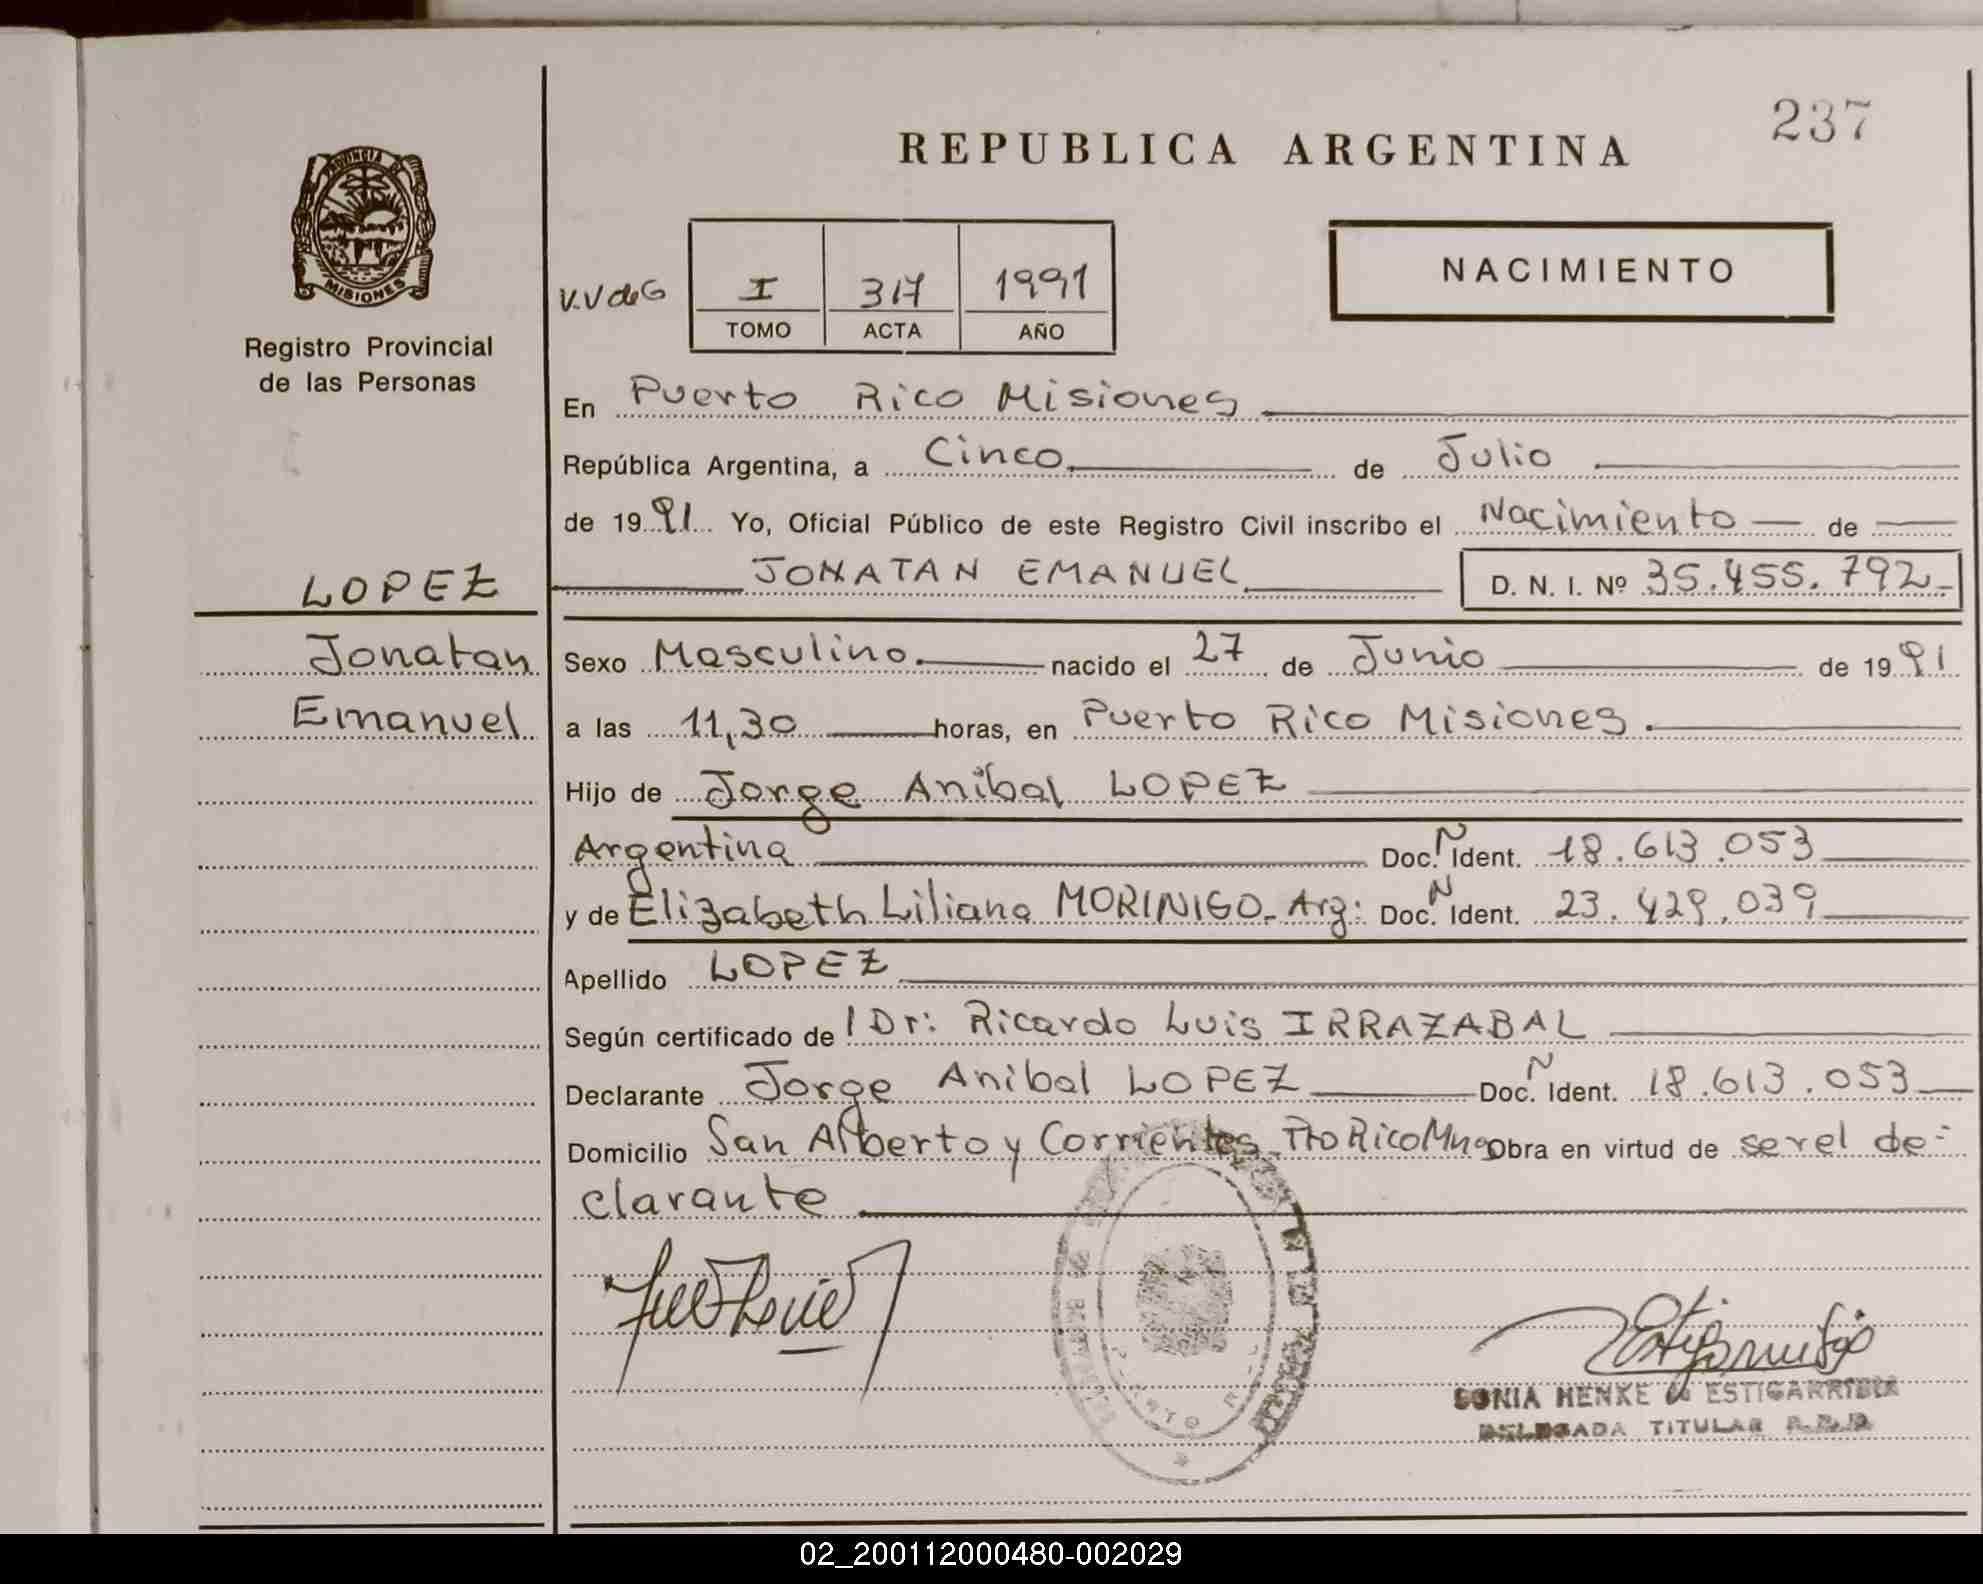 237
REPUBLICA ARGENTINA
PROVINCIA DE
MISIONES
Registro Provincial
de las Personas
V.V de G
I 317 1991
TOMO ACTA AÑO
NACIMIENTO
En Puerto Rico Misiones
República Argentina, a Cinco de Julio
de 1991 Yo, Oficial Público de este Registro Civil inscribo el Nacimiento de
JONATAN EMANUEL D. N. I. Nº 35.455.792
LOPEZ
Jonatan
Emanuel
Sexo Masculino nacido el 27 de Junio de 1991
a las 11,30 horas, en Puerto Rico Misiones.
Hijo de Jorge Anibal LOPEZ
Argentina Doc. N Ident. 18.613.053
y de Elizabeth Liliana MORINIGO. Arg: Doc. N Ident. 23.429.039
Apellido LOPEZ
Según certificado de l Dr: Ricardo Luis IRRAZABAL
Declarante Jorge Anibal LOPEZ Doc. N Ident. 18.613.053
Domicilio San Alberto y Corrientes Pto Rico Mnes Obra en virtud de ser el de-
clarante
SONIA HENKE de ESTIGARRIBIA
DELEGADA TITULAR R.P.P.
02_200112000480-002029